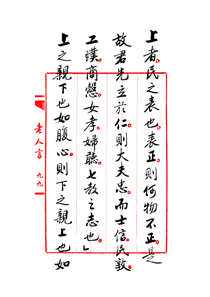 上者。民之表也。表正。則何物不正。是
故君先立於仁。則大夫忠。而士信。民敦。
工璞。商愨。女孝。婦聽。七教之志也。」
上之親下也。如腹心。則下之親上也。如
老人言 九九